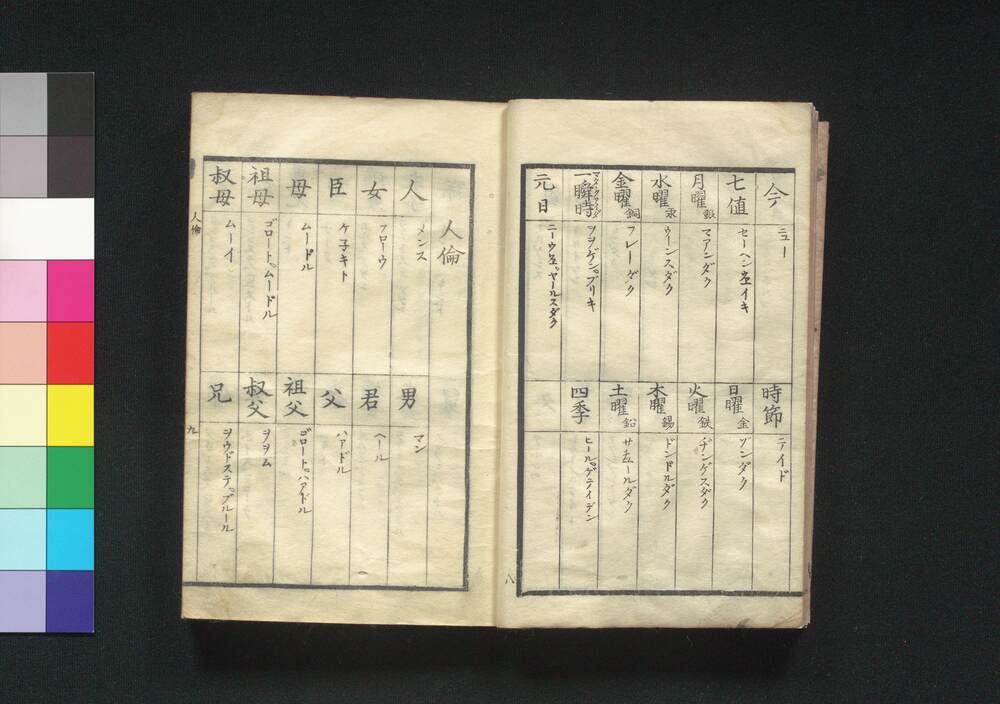 今 ニュー
七値 セーヘン
月曜 銀 マアンダク
水曜 汞 ウーンスダク
金曜 銅 フレーダク
一瞬時 マタタクアイダ ヲヲゲン。ブリキ
元日 ヤールスダク
時節 テイド
日曜 金 ゾンダク
火曜 鉄 ヂンゲスダク
木曜 錫 ドンドルダク
土曜 鉛
四季 ヒール。ゲテイデン
八
人倫
人 メンス
女 フローウ
臣 ケ子キト
母 ムードル
祖母 ゴロート。ムードル
叔母 ムーイ
男 マン
君 ヘール
父 ハアドル
祖父 ゴロート。ハアドル
叔父 ヲヲム
兄 ヲウドステ。ブルール
人倫
九